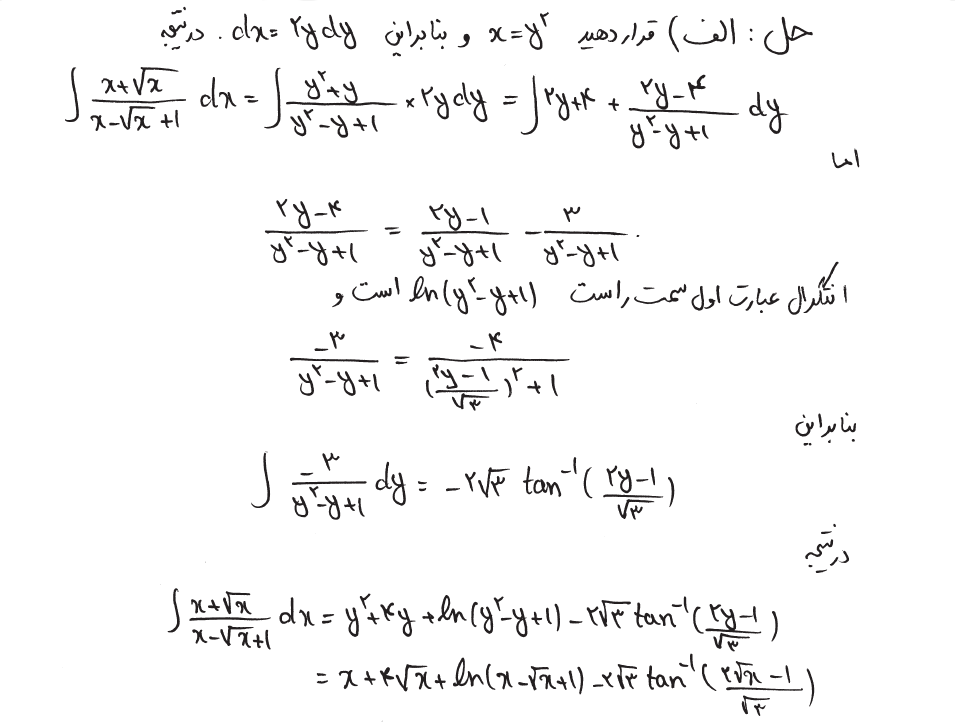 حل : الف) قرار دهید x=y² و بنابراین dx= ۲y dy . در نتیجه
∫ (x+√x)/(x-√x+1) dx = ∫ (y²+y)/(y²-y+1) × ۲y dy = ∫ ۲y+۴ + (۲y-۴)/(y²-y+1) dy
اما
(۲y-۴)/(y²-y+1) = (۲y-1)/(y²-y+1) - ۳/(y²-y+1) .
انتگرال عبارت اول سمت راست ln(y²-y+1) است و
-۳/(y²-y+1) = -۴/(((۲y-1)/√۳)²+1)
بنابراین
∫ -۳/(y²-y+1) dy = -۲√۳ tan⁻¹((۲y-1)/√۳)
در نتیجه
∫ (x+√x)/(x-√x+1) dx = y²+۴y+ln(y²-y+1)-۲√۳ tan⁻¹((۲y-1)/√۳)
= x+۴√x+ln(x-√x+1)-۲√۳ tan⁻¹((۲√x-1)/√۳)